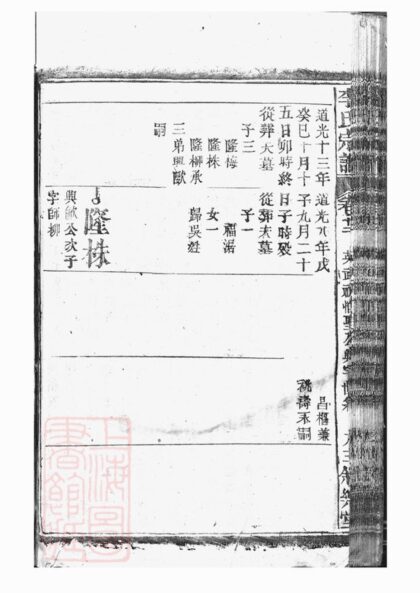 道光十三年
癸巳十月十
五日卯時終
從葬大墓
子三
隆梅
隆株
隆柳承
三弟興猷
嗣
道光八年戊
子九月二十
日子時歿
從葬大墓
子一
福
女一
歸吳姓
隆株
興猷公次子
字師柳
昌楣兼
承嗣
李氏宗譜
上海圖書館藏